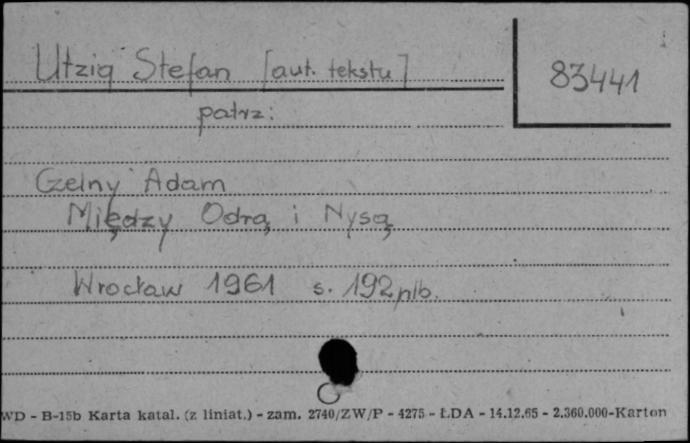 Utzig Stefan [aut. tekstu]
83441
patrz:
Czelny Adam
Między Odrą i Nysą
Wrocław 1961 s. 192 nlb.
WD - B-15b Karta katal. (z liniat.) - zam. 2740/ZW/P - 4275 - ŁDA - 14.12.65 - 2.360.000-Karton